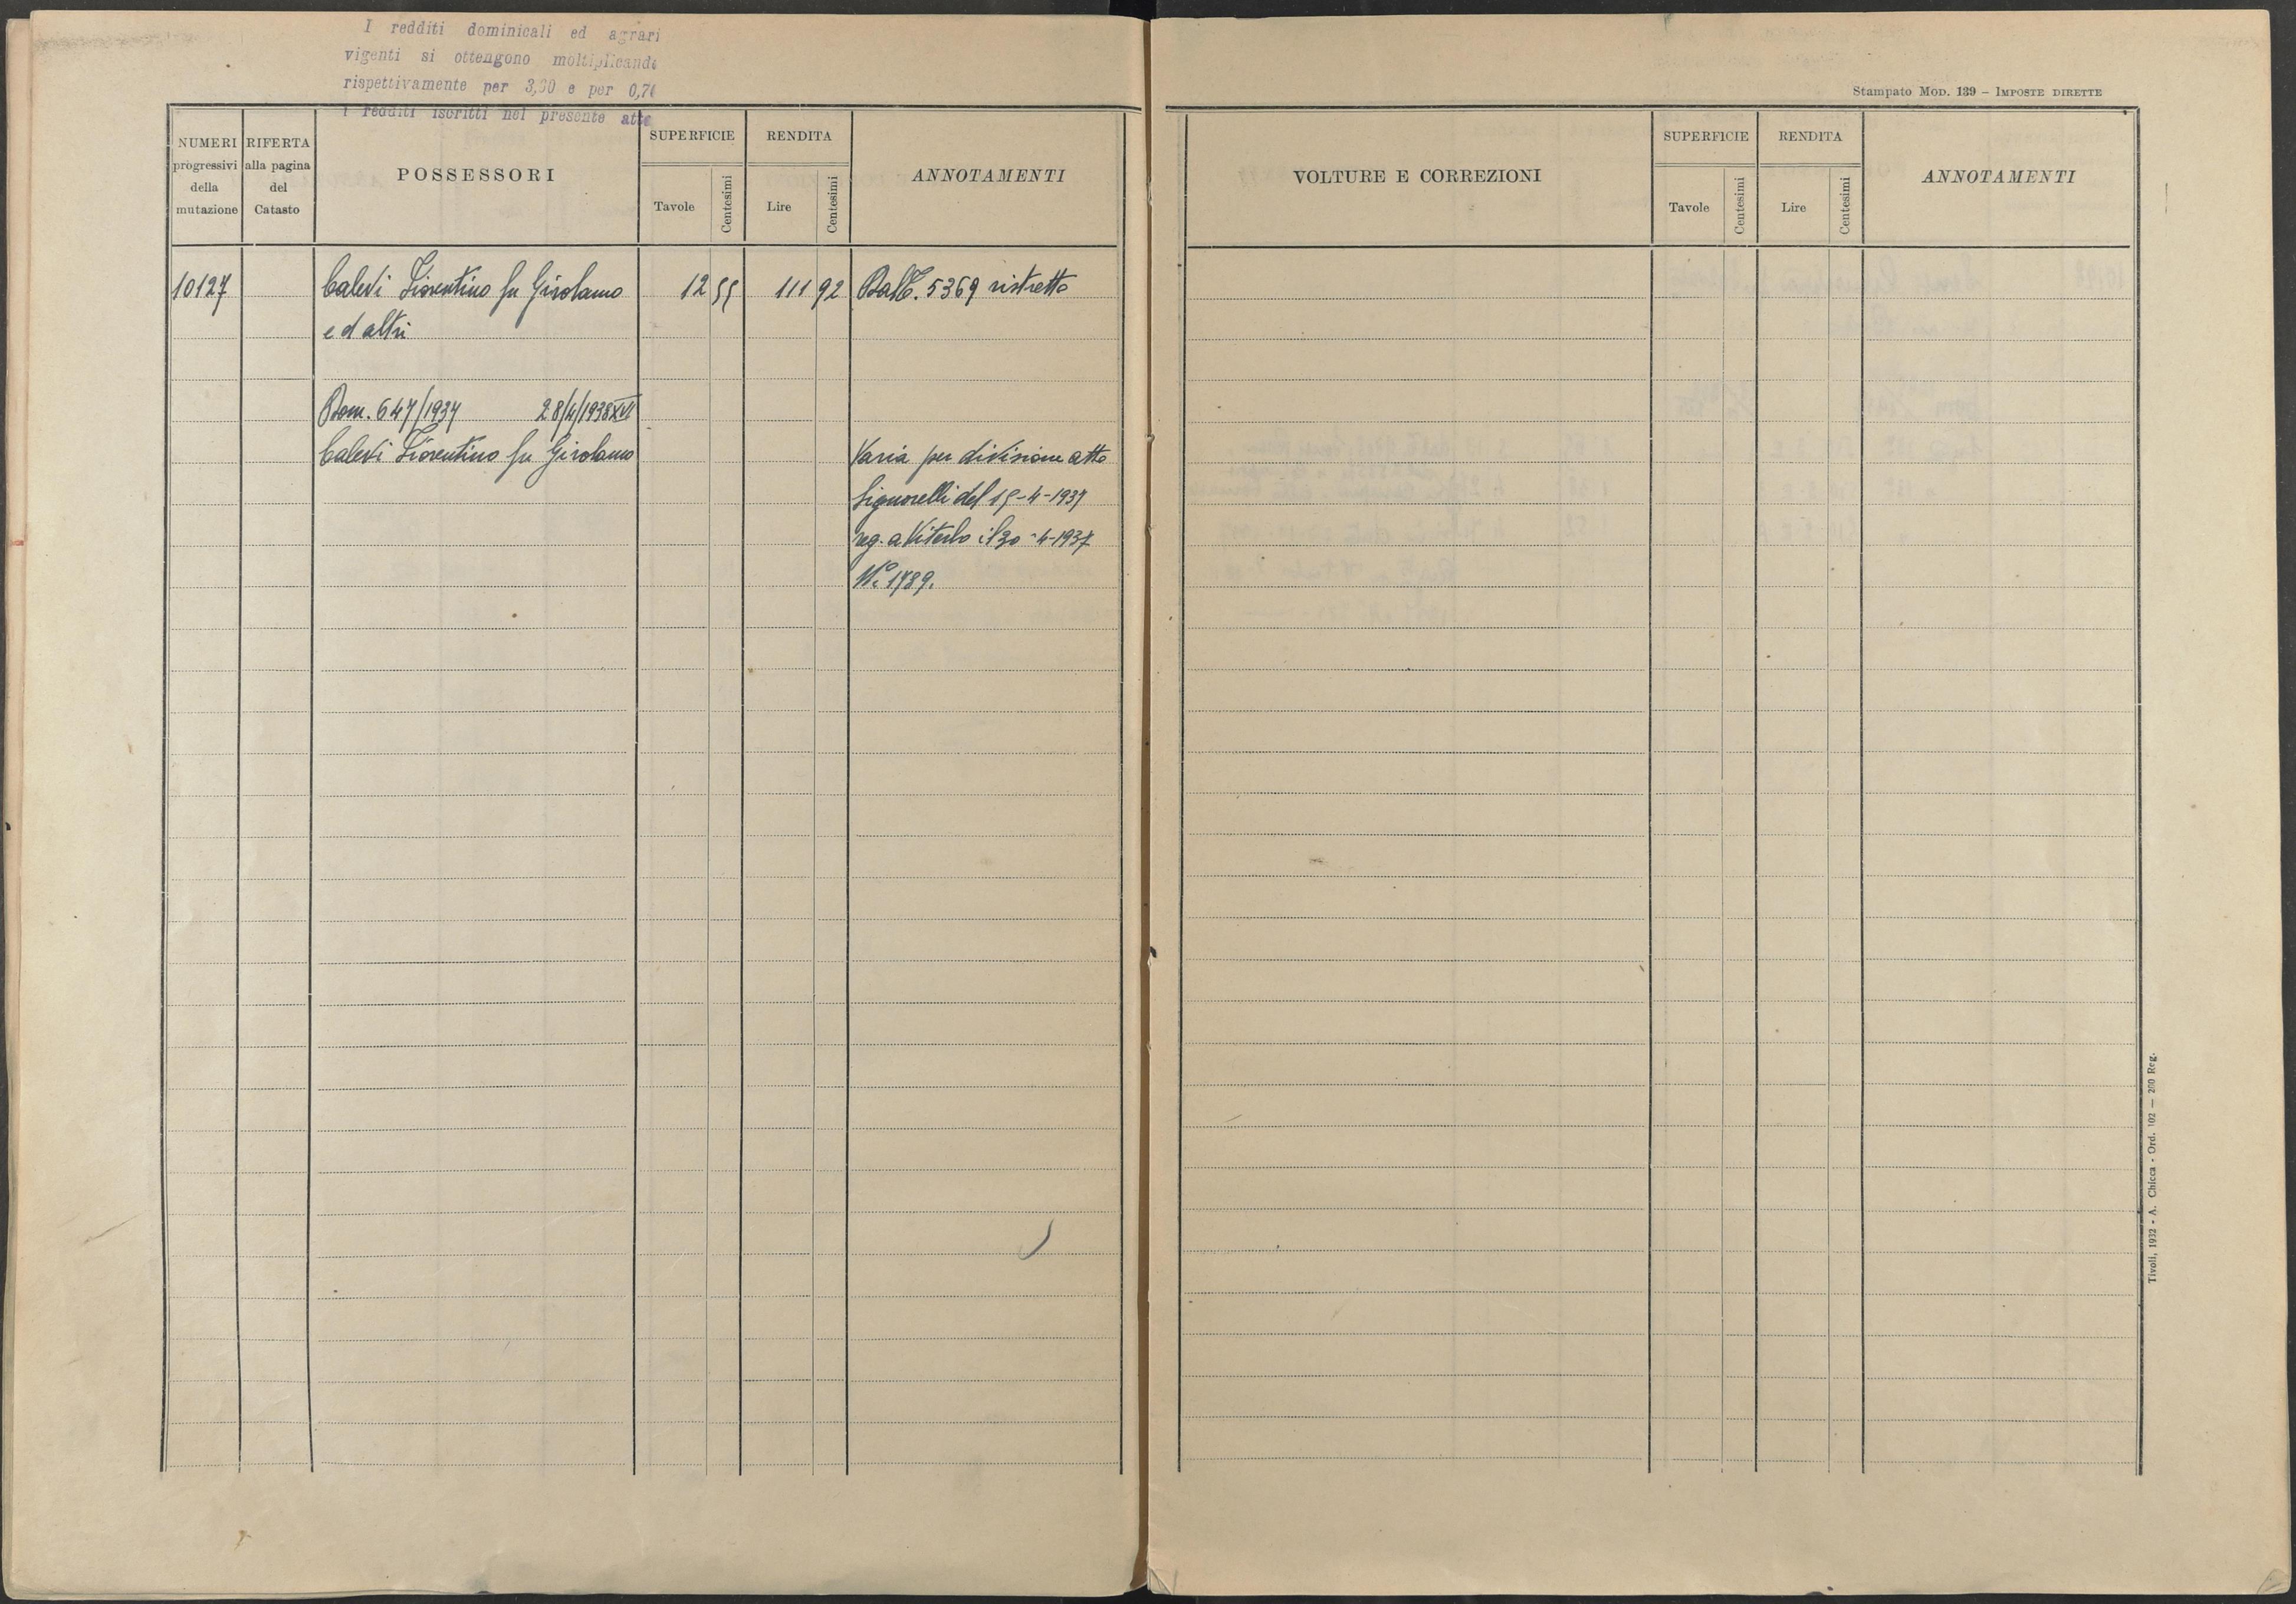 I redditi dominicali ed agrari
vigenti si ottengono moltiplicando
rispettivamente per 3,30 e per 0,70
I redditi iscritti nel presente atto
NUMERI progressivi della mutazione
RIFERTA alla pagina del Catasto
POSSESSORI
SUPERFICIE
Tavole
Centesimi
RENDITA
Lire
Centesimi
ANNOTAMENTI
10127 Calevi Fiorentino fu Girolamo 12 55 111 92 Part. 5369 ristretto
ed altri
Dom. 647/1937 28/4/1938 XVI
Calevi Fiorentino fu Girolamo Varia per divisione atto
Signorelli del 15-4-1937
reg. a Viterbo il 30-4-1937
N° 1789.
Stampato Mod. 139 – Imposte dirette
VOLTURE E CORREZIONI
SUPERFICIE
Tavole
Centesimi
RENDITA
Lire
Centesimi
ANNOTAMENTI
Tivoli, 1932 - A. Chicca - Ord. 102 — 200 Reg.